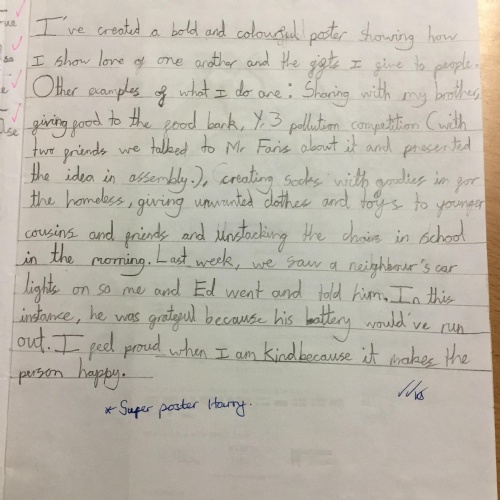 rue
so
e
lse
I've created a bold and colourful poster showing how
I show love of one another and the gifts I give to people.
Other examples of what I do are: Sharing with my brother,
giving food to the food bank, Y.3 pollution competition (with
two friends we talked to Mr Faris about it and presented
the idea in assembly.), creating socks with goodies in for
the homeless, giving unwanted clothes and toys to younger
cousins and friends and unstacking the chairs in school
in the morning. Last week, we saw a neighbour's car
lights on so me and Ed went and told him. In this
instance, he was grateful because his battery would've run
out. I feel proud when I am kind because it makes the
person happy.
* Super poster Harry.